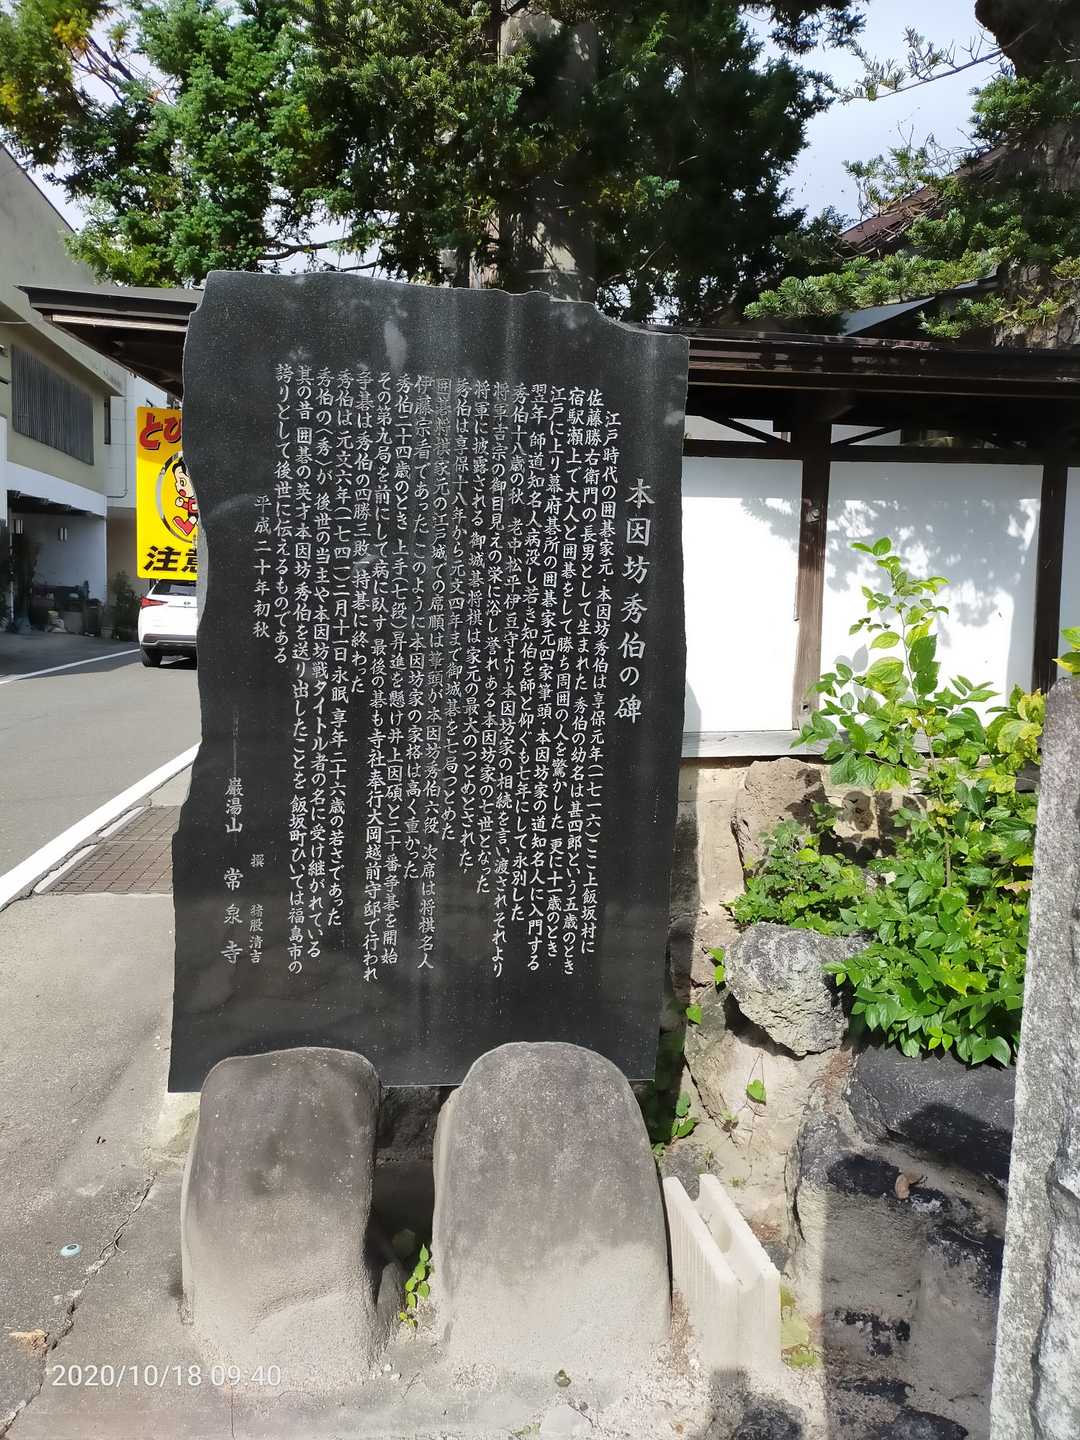 本因坊秀伯の碑
江戸時代の囲碁家元・本因坊秀伯は享保元年(一七一六)ここ上飯坂村に
佐藤勝右衛門の長男として生まれた 秀伯の幼名は甚四郎という五歳のとき
宿駅瀬上で大人と囲碁をして勝ち周囲の人を驚かした 更に十一歳のとき
江戸に上り幕府碁所の囲碁家元四家筆頭・本因坊家の道知名人に入門する
翌年 師道知名人病没し若き知伯を師と仰ぐも七年にして永別した
秀伯十八歳の秋 老中松平伊豆守より本因坊家の相続を言い渡されそれより
将軍吉宗の御目見えの栄に浴し誉れある本因坊家の七世となった
将軍に披露される 御城碁将棋は家元の最大のつとめとされた
秀伯は享保十八年から元文四年まで御城碁を七局つとめた
囲碁将棋家元の江戸城での席順は筆頭が本因坊秀伯六段 次席は将棋名人
伊藤宗看であった このように本因坊家の家格は高く重かった
秀伯二十四歳のとき 上手(七段)昇進を懸け井上因碩と二十番争碁を開始
その第九局を前にして病に臥す 最後の碁も寺社奉行大岡越前守邸で行われ
争碁は秀伯の四勝三敗一持碁に終わった
秀伯は 元文六年(一七四一)二月十一日永眠 享年二十六歳の若さであった
秀伯の(秀)が 後世の当主や本因坊戦タイトル者の名に受け継がれている
其の昔 囲碁の英才本因坊秀伯を送り出したことを 飯坂町ひいては福島市の
誇りとして後世に伝えるものである
平成二十年初秋
撰 猪股清吉
巌湯山 常泉寺
とび
注意
2020/10/18 09:40